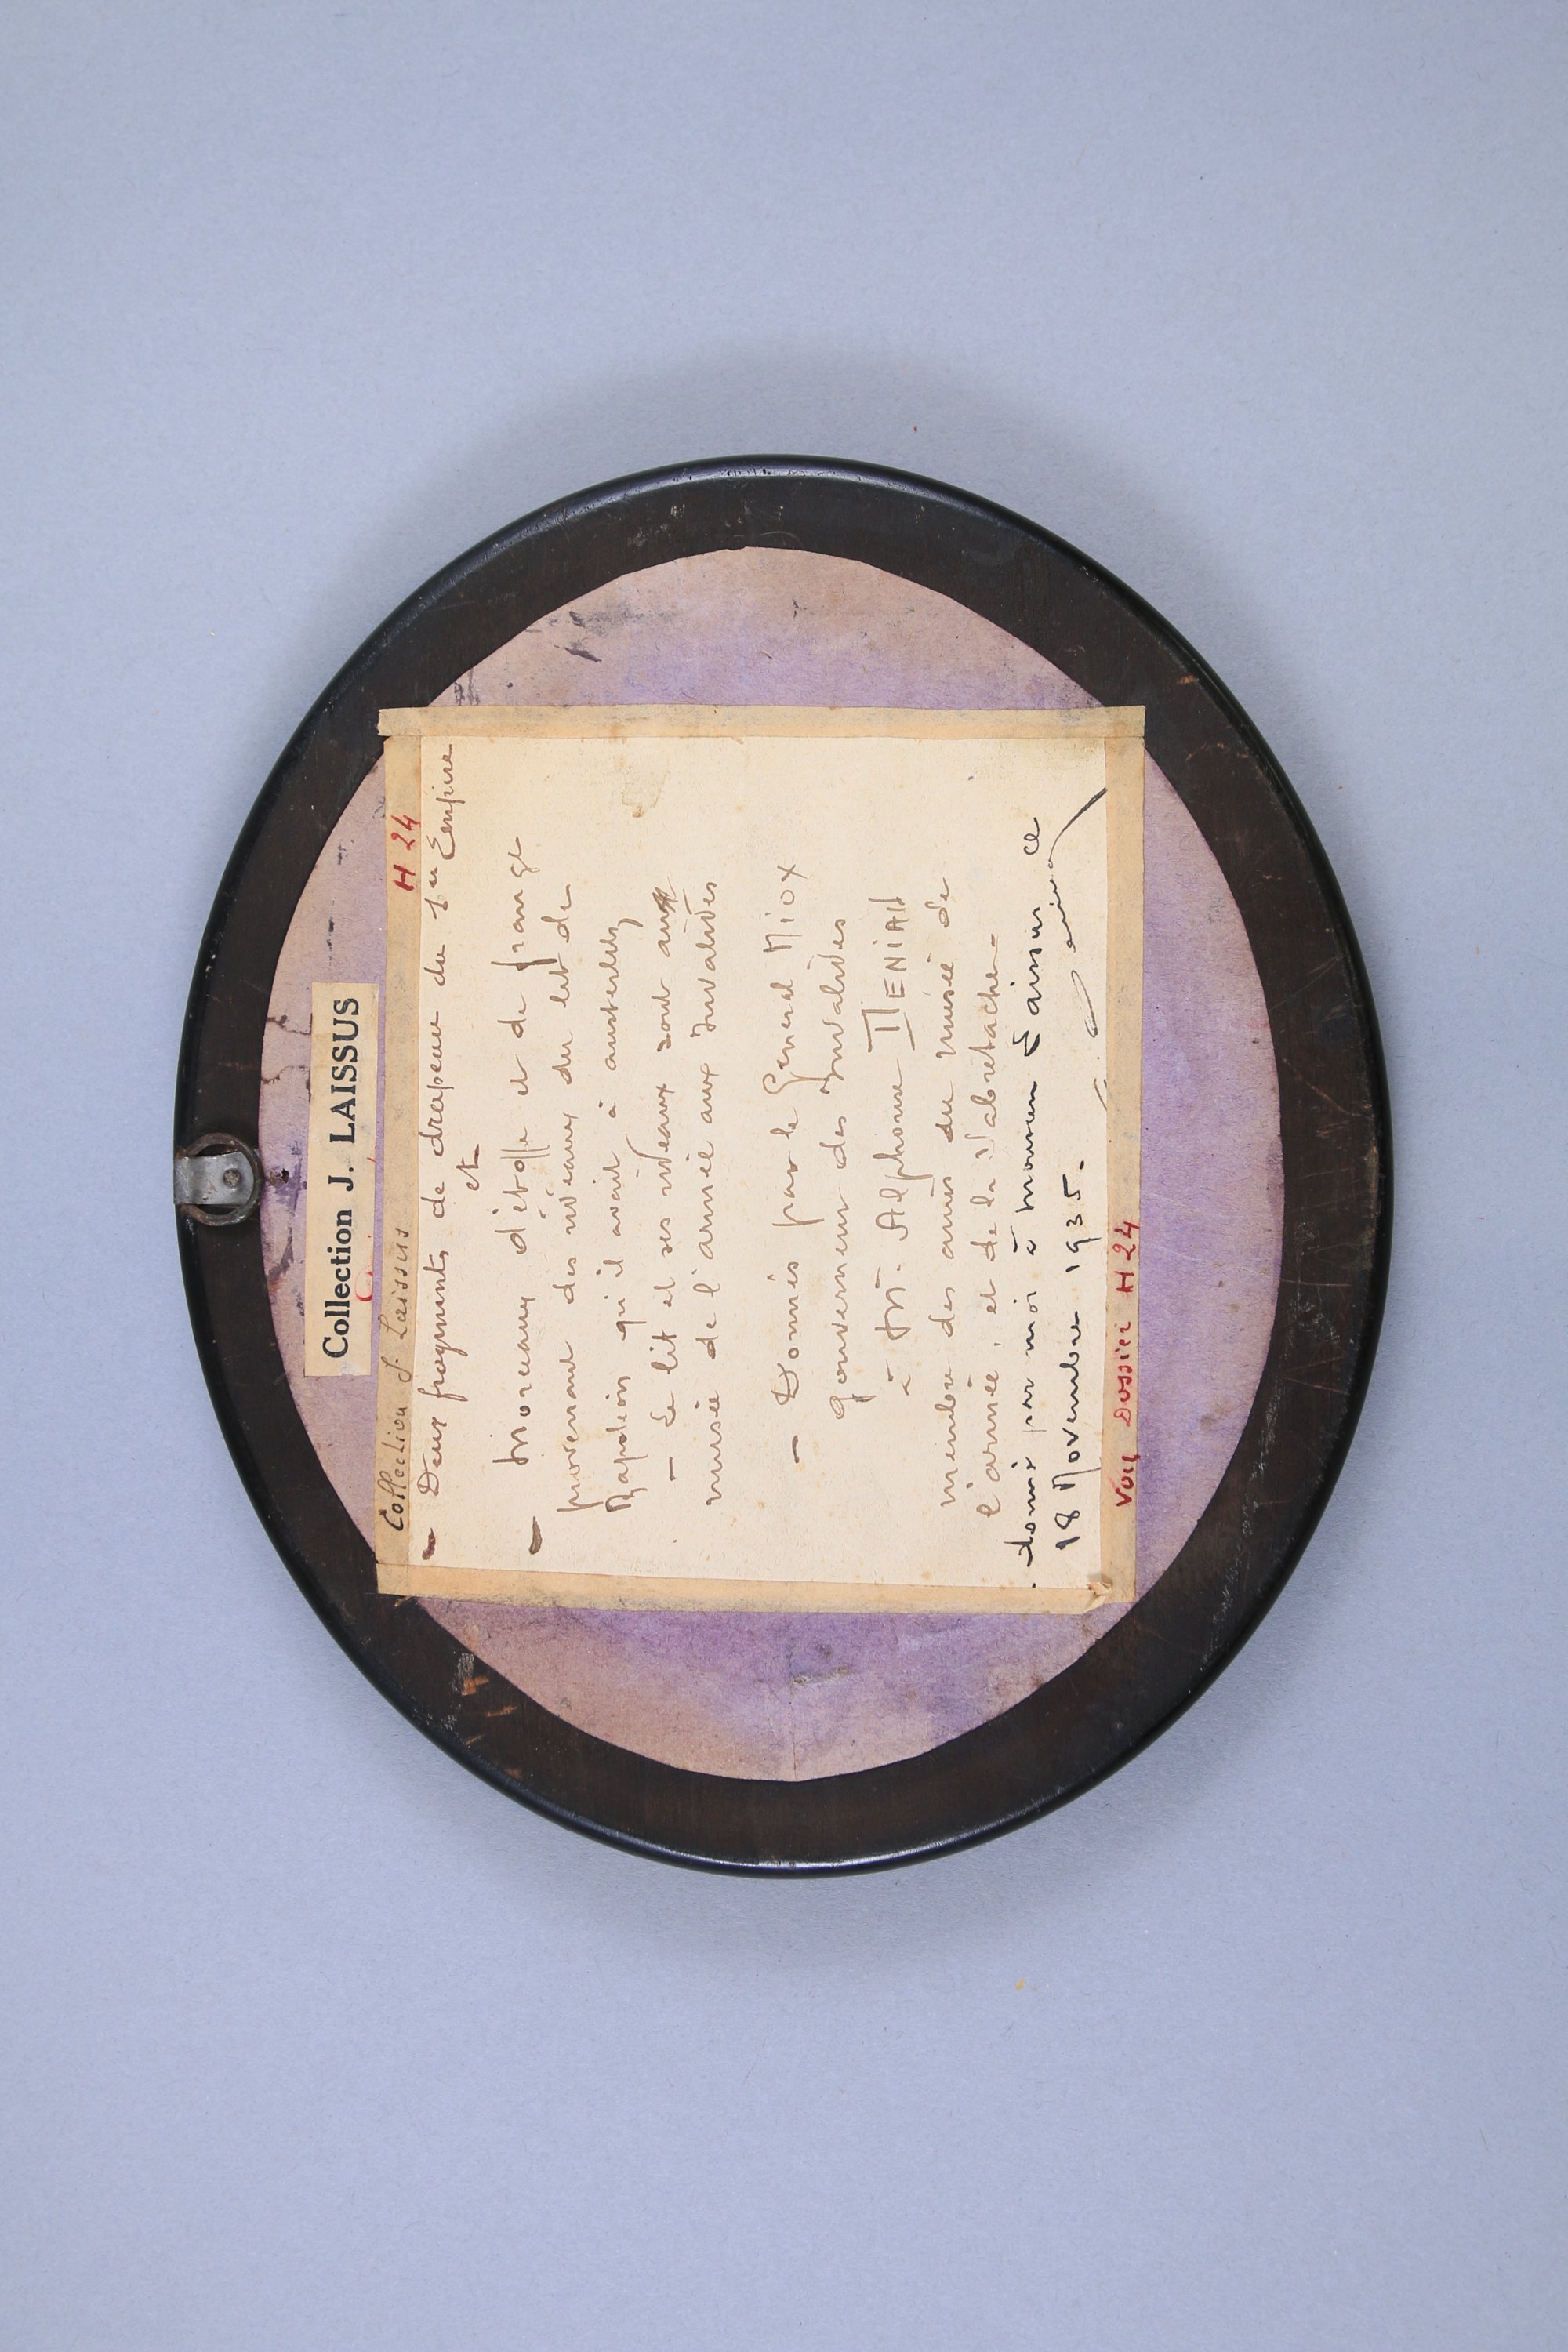 Collection J. LAISSUS
Collection J. Laissus H 24
- Deux fragments de drapeau du 1er Empire
et
- Morceaux d'étoffe et de frange
provenant des rideaux du lit de
Napoléon qu'il avait à austerlitz
- Le lit et ses rideaux sont au
musée de l'armée aux Invalides
- Donnés par le General Niox
gouverneur des Invalides
à M. Alphonse
membre des amis du musée de
l'armée, et de la Sabretache -
- donné par moi à monsieur Laissus ce
18 Novembre 1935.
Voy Dossier H 24